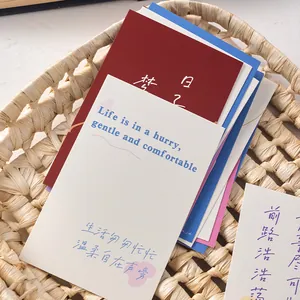 日子
梦
Life is in a hurry,
gentle and comfortable
生活匆匆忙忙
温柔自在
尽可
前路浩浩荡